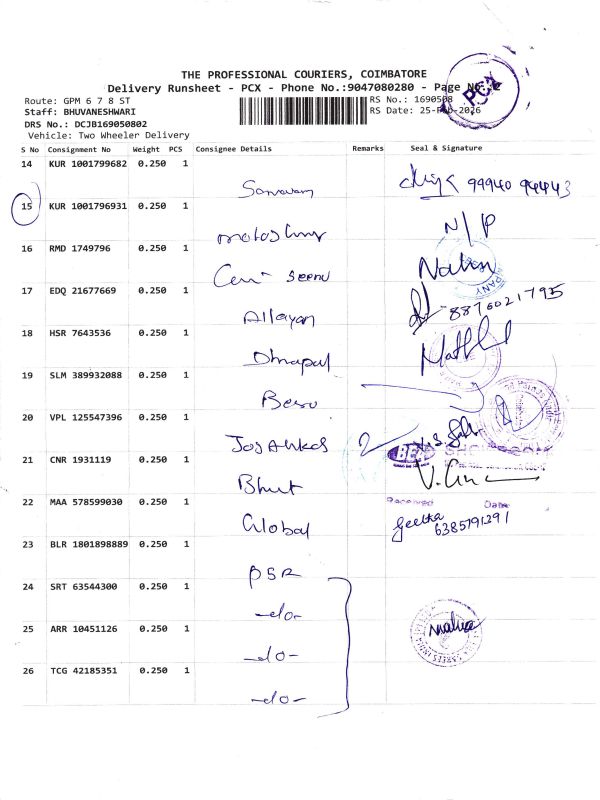 THE PROFESSIONAL COURIERS, COIMBATORE
Delivery Runsheet - PCX - Phone No.:9047080280 - Page No.
PCX
Route: GPM 6 7 8 ST
RS No.: 1690508
Staff: BHUVANESHWARI
RS Date: 25-Feb-2026
DRS No.: DCJB169050802
Vehicle: Two Wheeler Delivery
S No Consignment No Weight PCS Consignee Details Remarks Seal & Signature
14 KUR 1001799682 0.250 1
99940 94443
15 KUR 1001796931 0.250 1
N/P
16 RMD 1749796 0.250 1
17 EDQ 21677669 0.250 1
8876021795
18 HSR 7643536 0.250 1
Dhnapal
19 SLM 389932088 0.250 1
20 VPL 125547396 0.250 1
21 CNR 1931119 0.250 1
Bhut
Received Date
22 MAA 578599030 0.250 1
Global
Geetha
6385791291
23 BLR 1801898889 0.250 1
PSR
24 SRT 63544300 0.250 1
-do-
25 ARR 10451126 0.250 1
-do-
26 TCG 42185351 0.250 1
-do-